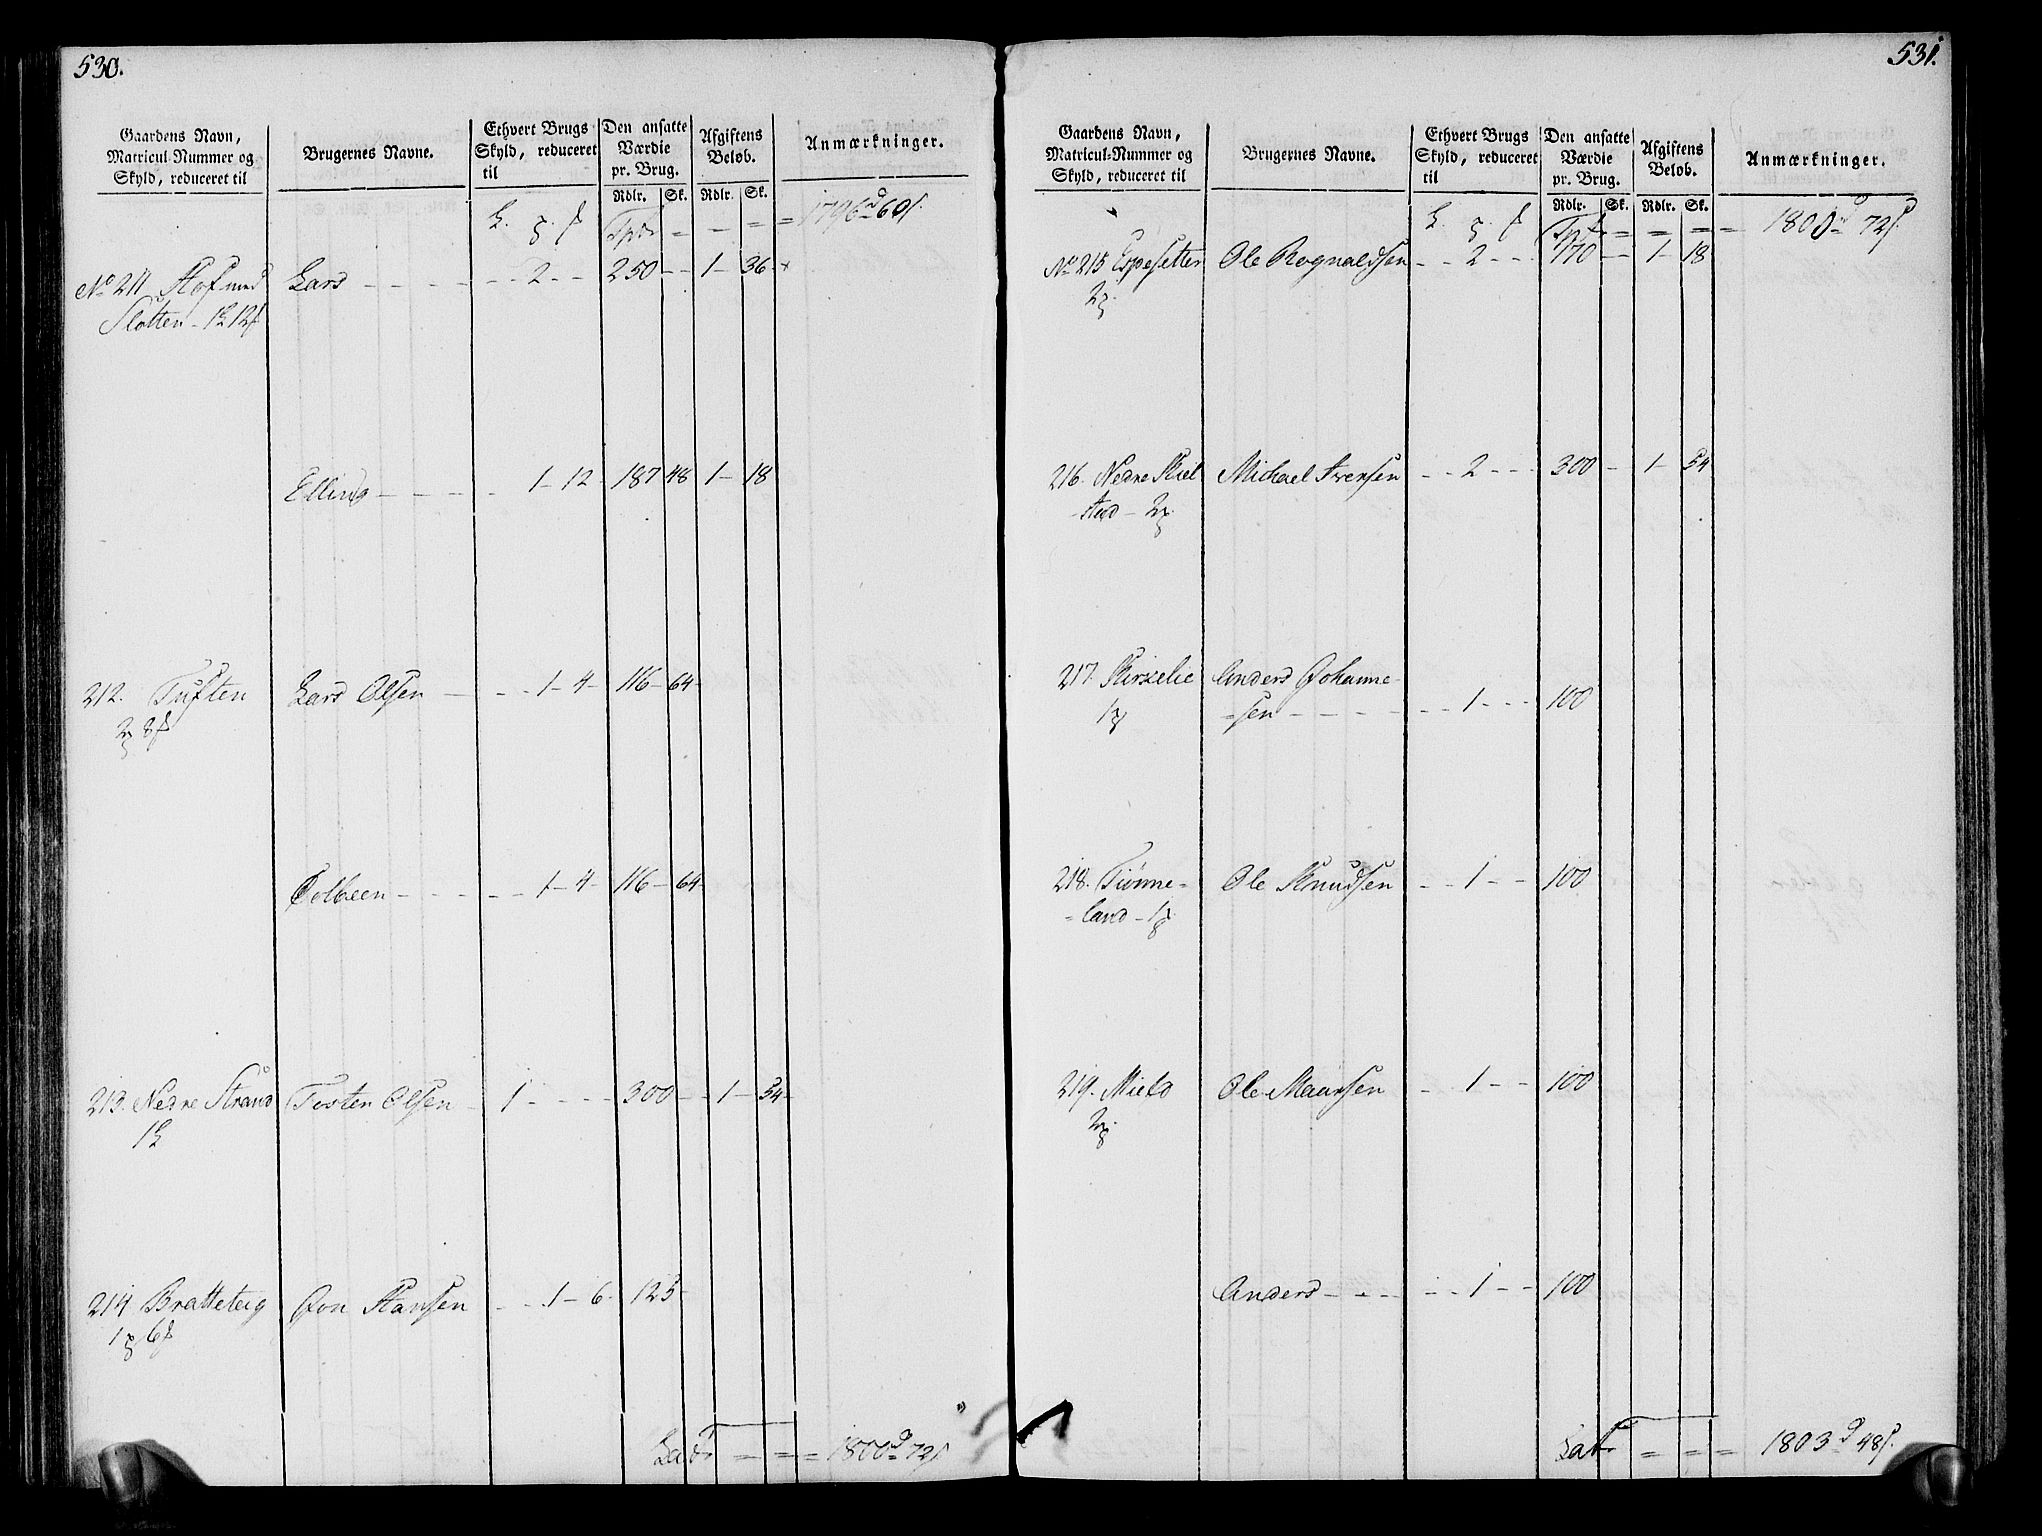 530.
Gaardens Navn, Matricul-Nummer og Skyld, reduceret til | Brugernes Navne. | Ethvert Brugs Skyld, reduceret til | Den ansatte Værdie pr. Brug. Rdlr. Sk. | Afgiftens Beløb. Rdlr. Sk. | Anmærkninger.
Tpt = - = = 1796 d 60 s.
No 211 Hof med Lars - - - - - - 2 - - 250 - - 1 - 36 -
Slotten - 12 s
Elling - - - - - 1 - 12 - 187 48 1 - 18
212. Tuften Lars Olsen - - - 1 - 4 - 116 - 64 -
2 8
Tolleen - - - - - 1 - 4 - 116 - 64 -
213. Nedre Strand Tosten Olsen - 1 - - - - 300 - - 1 - 54 -
1
214 Bratteteig Jon Hansen - - 1 - 6 - 125 -
1 6
Lat = = = 1800 d 72 s
531.
Gaardens Navn, Matricul-Nummer og Skyld, reduceret til | Brugernes Navne. | Ethvert Brugs Skyld, reduceret til | Den ansatte Værdie pr. Brug. Rdlr. Sk. | Afgiftens Beløb. Rdlr. Sk. | Anmærkninger.
Tpt = = = = = 1800 d 72 s.
No 215 Espesetter Ole Rognaldsen - - 2 - - - 170 - - 1 - 18
2
216. Nedre Kiel Michael Iversen - - 2 - - - 300 - 1 - 54
sted - 2
217. Kirzelie Anders Johanne-
1 =sen - - - - - - 1 - - - 100
218. Tiønne= Ole Knudsen - - 1 - - 100
=land - 1
219. Mield Ole Maansen - 1 - - 100
2
Anders - - - - - 1 - - 100
Lat = = = = 1803 d 48 s.